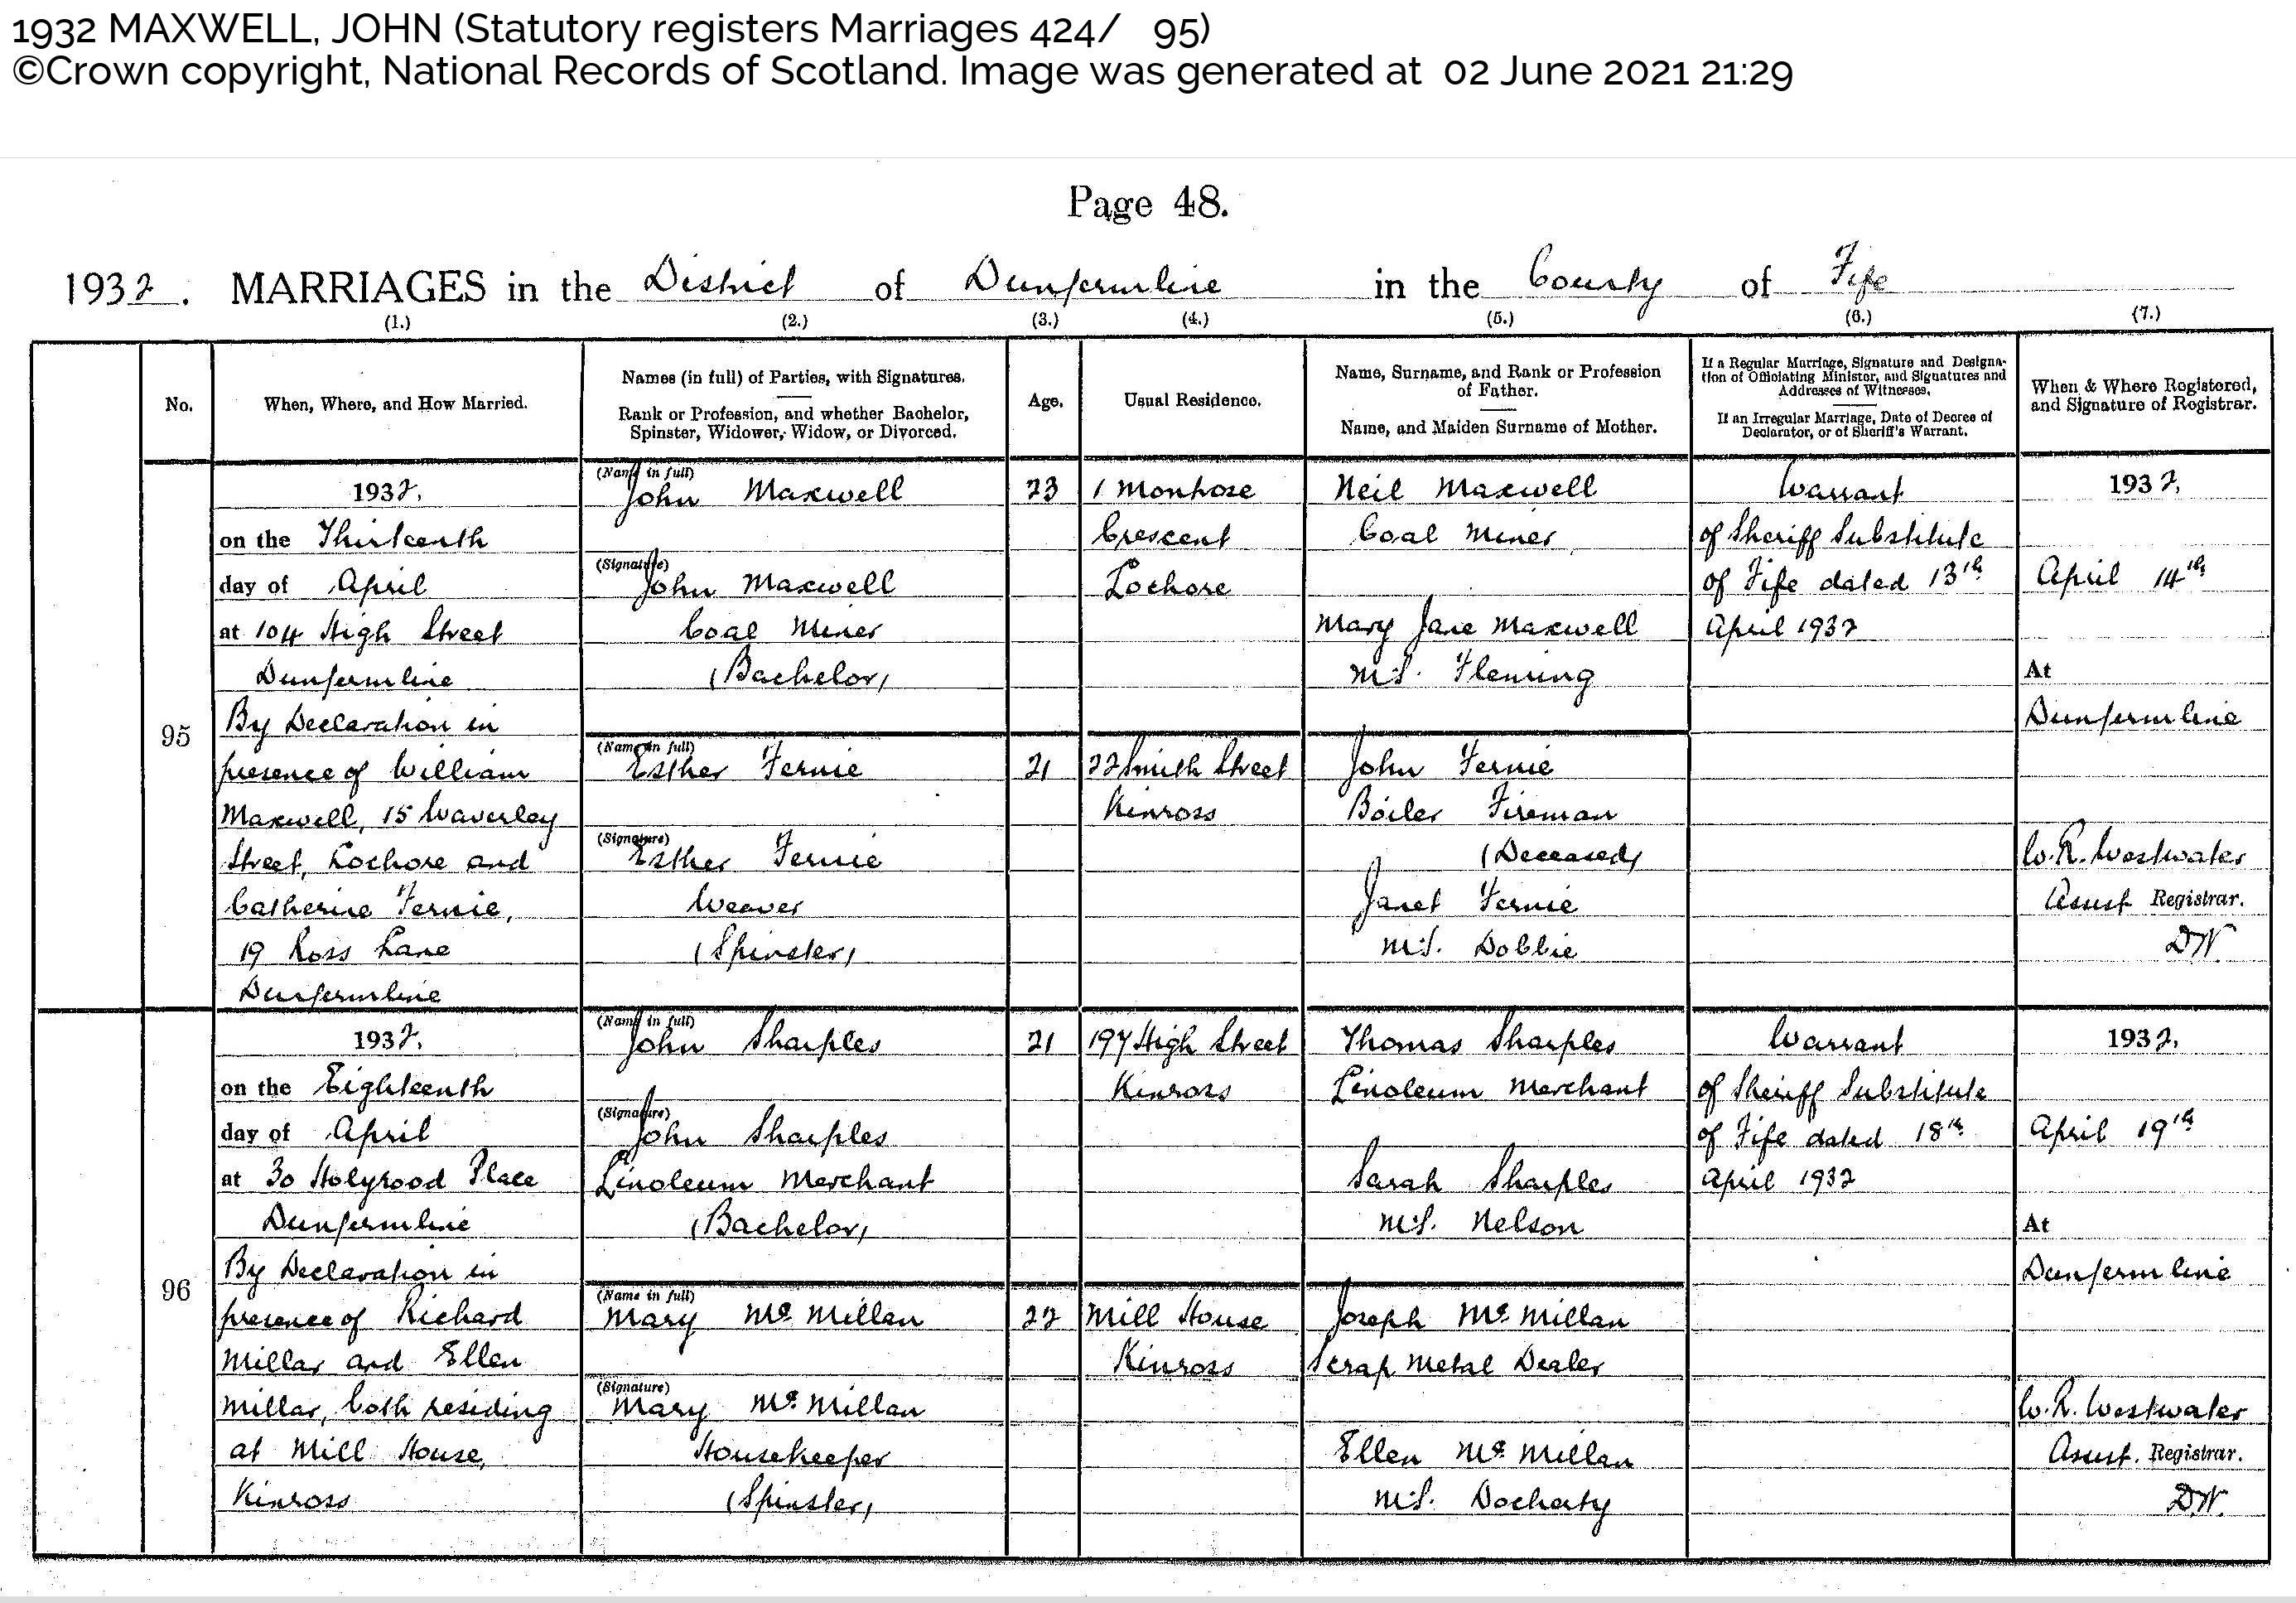 1932 MAXWELL, JOHN (Statutory registers Marriages 424/ 95)
©Crown copyright, National Records of Scotland. Image was generated at 02 June 2021 21:29
Page 48.
1932. MARRIAGES in the District of Dunfermline in the County of Fife
(1.) (2.) (3.) (4.) (5.) (6.) (7.)
No.
When, Where, and How Married.
Names (in full) of Parties, with Signatures.
Rank or Profession, and whether Bachelor,
Spinster, Widower, Widow, or Divorced.
Age.
Usual Residence.
Name, Surname, and Rank or Profession
of Father.
Name, and Maiden Surname of Mother.
If a Regular Marriage, Signature and Designa-
tion of Officiating Minister, and Signatures and
Addresses of Witnesses.
If an Irregular Marriage, Date of Decree of
Declarator, or of Sheriff's Warrant.
When & Where Registered,
and Signature of Registrar.
95
1932,
on the Thirteenth
day of April
at 104 High Street
Dunfermline
By Declaration in
presence of William
Maxwell, 15 Waverley
Street, Lochore and
Catherine Fernie,
19 Ross Lane
Dunfermline
(Name in full)
John Maxwell
(Signature)
John Maxwell
Coal Miner
(Bachelor)
23
1 Montrose
Crescent
Lochore
Neil Maxwell
Coal Miner
Mary Jane Maxwell
M.S. Fleming
(Name in full)
Esther Fernie
(Signature)
Esther Fernie
Weaver
(Spinster)
21
22 Smith Street
Kinross
John Fernie
Boiler Fireman
(Deceased)
Janet Fernie
M.S. Dobbie
Warrant
of Sheriff Substitute
of Fife dated 13th
April 1932
1932,
April 14th
At
Dunfermline
W.R. Westwater
Assist Registrar.
DW.
96
1932,
on the Eighteenth
day of April
at 30 Holyrood Place
Dunfermline
By Declaration in
presence of Richard
Millar and Ellen
Millar, both residing
at Mill House,
Kinross
(Name in full)
John Sharples
(Signature)
John Sharples
Linoleum Merchant
(Bachelor)
21
197 High Street
Kinross
Thomas Sharples
Linoleum Merchant
Sarah Sharples
M.S. Nelson
(Name in full)
Mary McMillan
(Signature)
Mary McMillan
Housekeeper
(Spinster)
22
Mill House
Kinross
Joseph McMillan
Scrap Metal Dealer
Ellen McMillan
M.S. Docherty
Warrant
of Sheriff Substitute
of Fife dated 18th
April 1932
1932,
April 19th
At
Dunfermline
W.R. Westwater
Assist. Registrar.
DW.